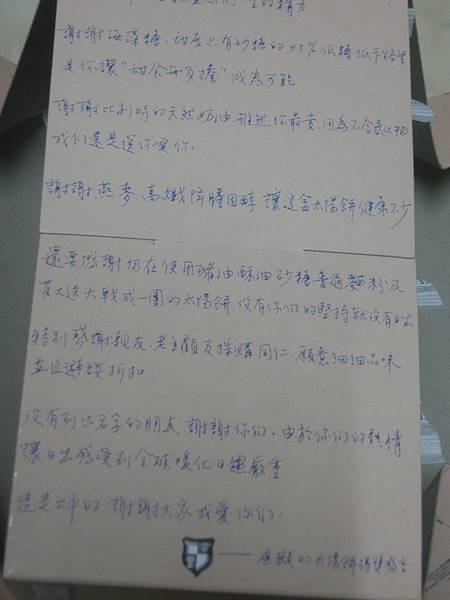 你們一生的精力
謝謝海藻糖，甜度只有砂糖的45%低糖低卡路里
是你讓"甜食無負擔"成為可能
謝謝比利時的天然奶油，雖然你最貴，因為不含氧化物
我們還是選你愛你.
謝謝燕麥、高纖降膽固醇讓這盒太陽餅健康不少
還要感謝仍在使用豬油酥油砂糖普通麵粉及
買大送大戰成一團的太陽餅，沒有你們的堅持就沒有日出
特別感謝親友、老主顧及採購同仁，願意細細品味
並且避談折扣
沒有列出名字的朋友 謝謝你們，由於你們的熱情
讓日出感受到全球暖化日趨嚴重
這是2年的 謝謝大家我愛你們!
的太陽餅得獎感言